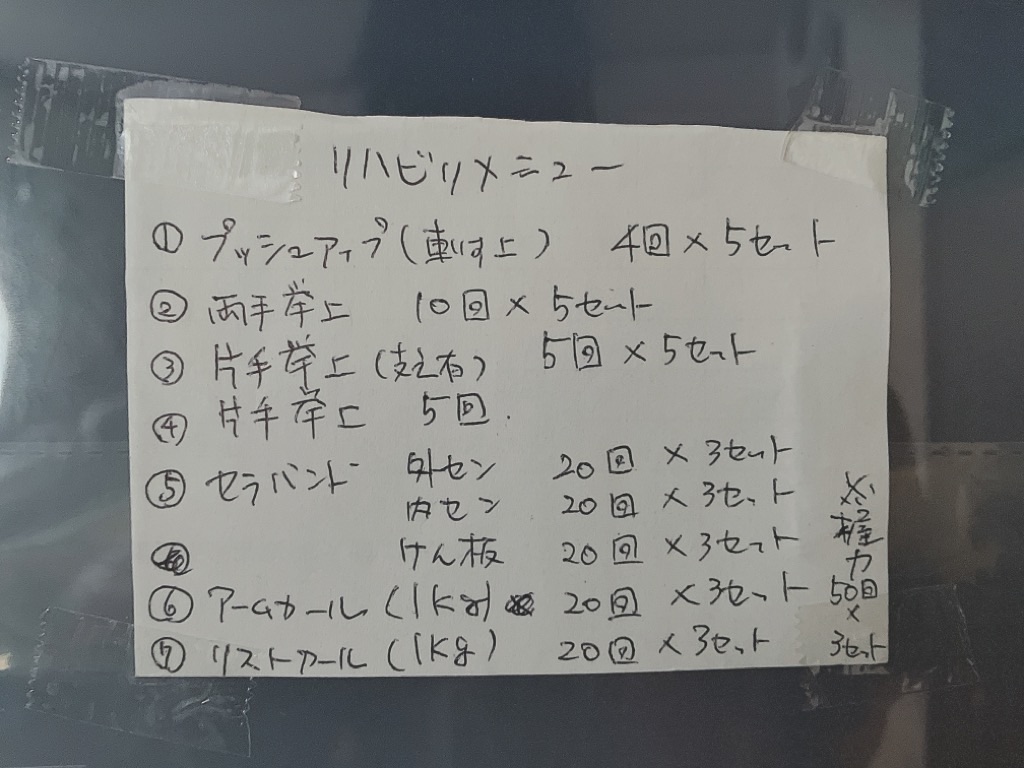 リハビリメニュー
① プッシュアップ(車いす上) 4回×5セット
② 両手挙上 10回×5セット
③ 片手挙上(支え有) 5回×5セット
④ 片手挙上 5回.
⑤ セラバンド 外セン 20回×3セット
内セン 20回×3セット
けん板 20回×3セット
⑥ アームカール(1kg) 20回×3セット
⑦ リストカール(1kg) 20回×3セット
握
力
50回
×
3セット